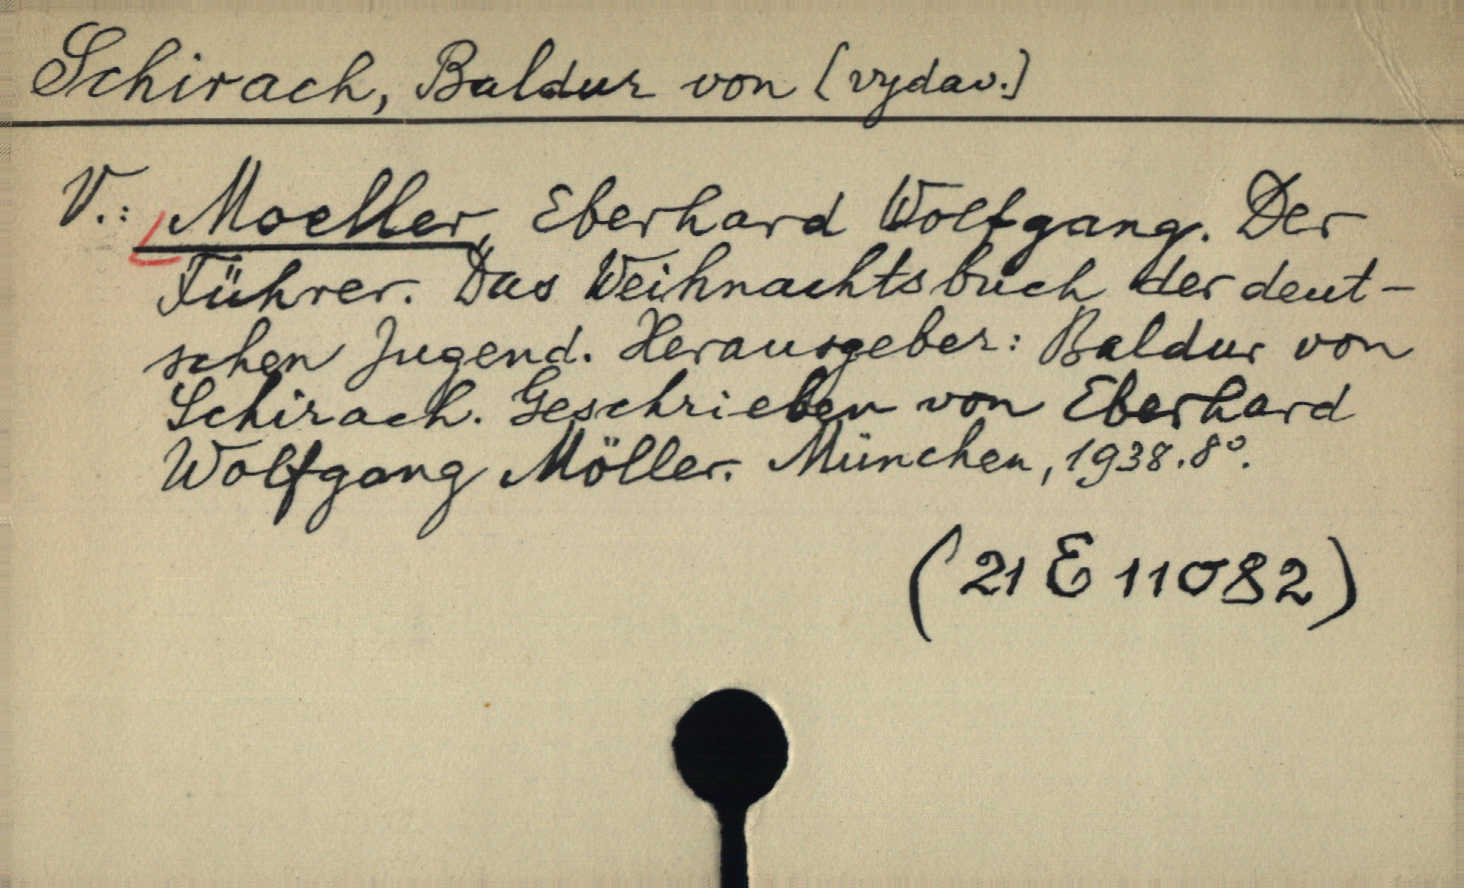 Schirach, Baldur von [vydav.]
V.: Moeller, Eberhard Wolfgang. Der
Führer. Das Weihnachtsbuch der deut-
schen Jugend. Herausgeber: Baldur von
Schirach. Geschrieben von Eberhard
Wolfgang Möller. München, 1938. 8°.
(21 E 11082)